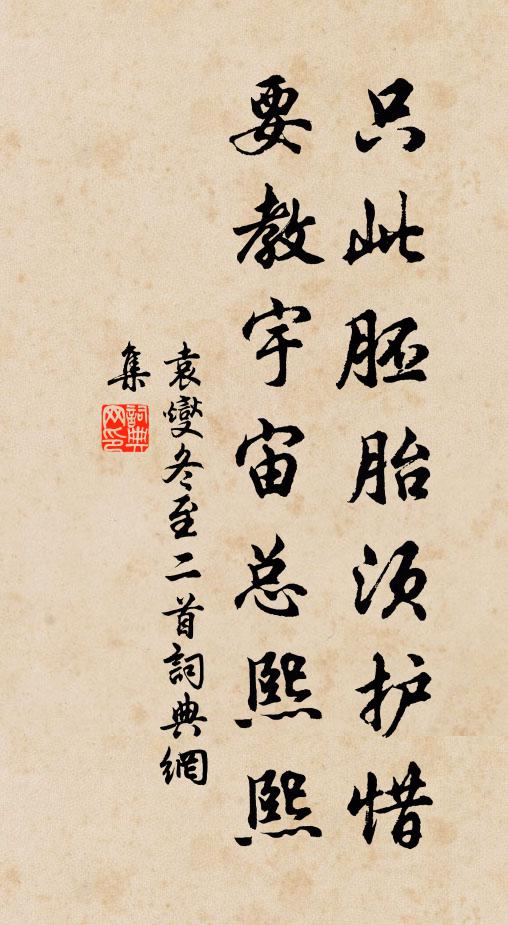 只此胚胎须护惜
要教宇宙总熙熙
袁燮冬至二首詞典網
集
詞典
网印